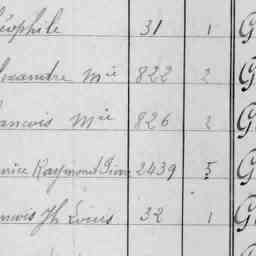 éophile 31 1 G
lexandre Mie 822 2 G
rancois Mie 826 2 G
urice Raymond 2439 5 G
ancois Jh Louis 32 1 G